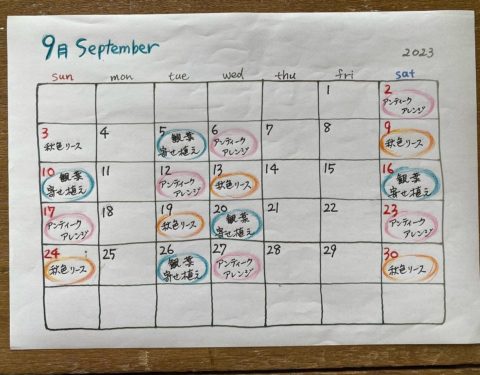 9月 September
2023
sun mon tue wed thu fri sat
1 2
アンティーク
アレンジ
3 4 5 6 7 8 9
秋色リース 観葉 アンティーク 秋色リース
寄せ植え アレンジ
10 11 12 13 14 15 16
観葉 アンティーク 秋色リース 観葉
寄せ植え アレンジ 寄せ植え
17 18 19 20 21 22 23
アンティーク 秋色リース 観葉 アンティーク
アレンジ 寄せ植え アレンジ
24 25 26 27 28 29 30
秋色リース 観葉 アンティーク 秋色リース
寄せ植え アレンジ